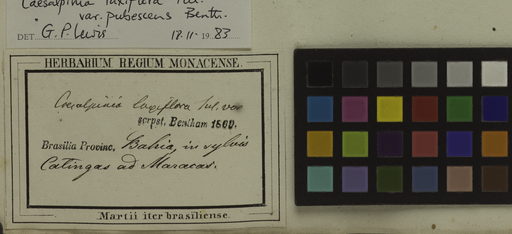 Caesalpinia laxiflora Tul.
var. pubescens Benth.
DET. G. P. Lewis 17.11.1983
HERBARIUM REGIUM MONACENSE.
Caesalpinia laxiflora Tul. var
scrpst. Bentham 1869.
Brasilia Provinc. Bahia, in sylvis
Catingas ad Maracas.
Martii iter brasiliense.